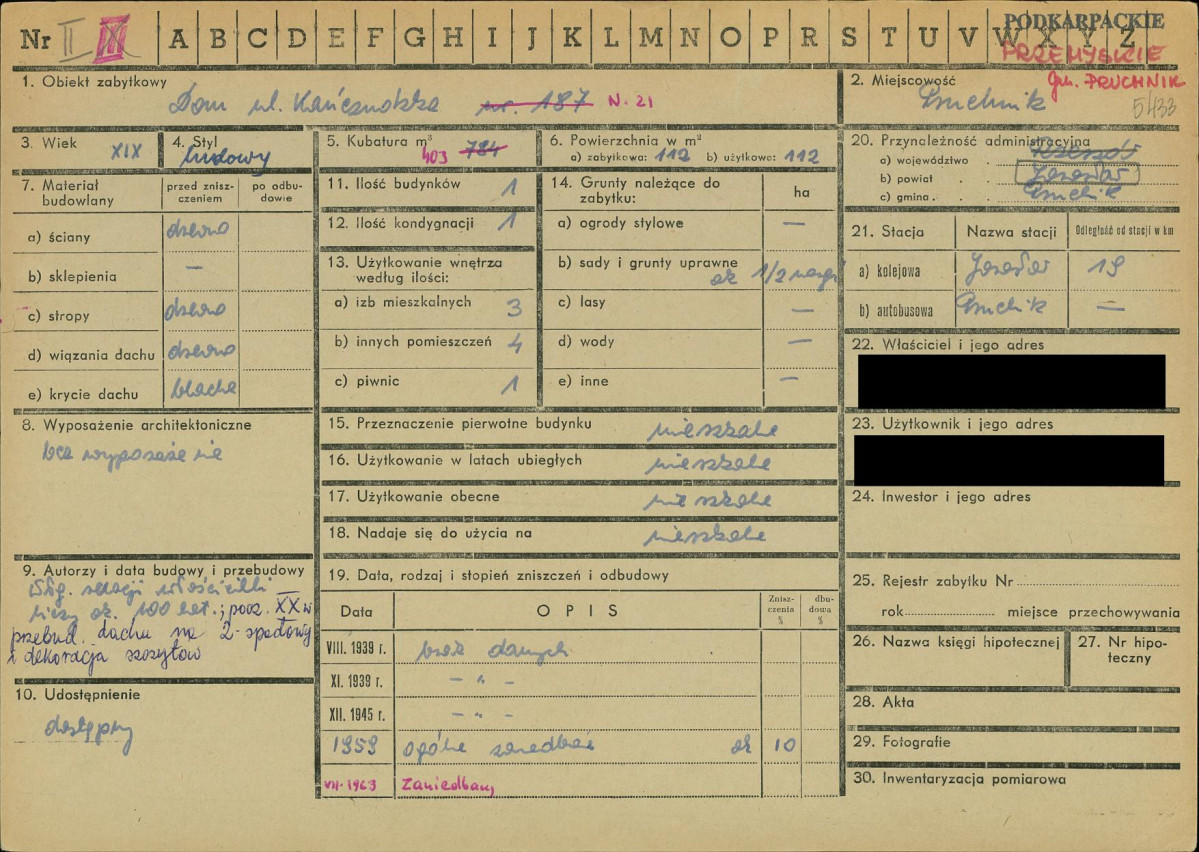 Nr II III
A B C D E F G H I J K L M N O P R S T U V W X Y Z
PODKARPACKIE
PRZEMYSKIE
gm. PRUCHNIK
1. Obiekt zabytkowy
Dom ul. Kańczudzka nr. 187 N. 21
2. Miejscowość
Pruchnik
5433
3. Wiek
XIX
4. Styl
ludowy
5. Kubatura m³
403 784
6. Powierzchnia w m²
a) zabytkowa: 112 b) użytkowa: 112
20. Przynależność administracyjna
a) województwo . Rzeszów
b) powiat . . Jarosław
c) gmina . . Pruchnik
7. Materiał budowlany
przed zniszczeniem
po odbudowie
a) ściany drewno
b) sklepienia —
c) stropy drewno
d) wiązania dachu drewno
e) krycie dachu blacha
11. Ilość budynków 1
12. Ilość kondygnacji 1
13. Użytkowanie wnętrza
według ilości:
a) izb mieszkalnych 3
b) innych pomieszczeń 4
c) piwnic 1
14. Grunty należące do
zabytku:
ha
a) ogrody stylowe —
b) sady i grunty uprawne
ok 1/2 morgi
c) lasy —
d) wody —
e) inne —
21. Stacja
Nazwa stacji
Odległość od stacji w km
a) kolejowa Jarosław 19
b) autobusowa Pruchnik —
22. Właściciel i jego adres
23. Użytkownik i jego adres
24. Inwestor i jego adres
8. Wyposażenie architektoniczne
bez wyposażenia
15. Przeznaczenie pierwotne budynku mieszkalne
16. Użytkowanie w latach ubiegłych mieszkalne
17. Użytkowanie obecne mieszkalne
18. Nadaje się do użycia na mieszkalne
9. Autorzy i data budowy i przebudowy
Wg. relacji właścicielki
liczy ok. 100 lat.; pocz. XX w
przebud. dachu na 2-spadowy
i dekoracja szczytów
10. Udostępnienie
dostępny
19. Data, rodzaj i stopień zniszczeń i odbudowy
Data
OPIS
Zniszczenia %
dbudowa %
VIII. 1939 r. brak danych
XI. 1939 r. — „ —
XII. 1945 r. — „ —
1959 ogólne zaniedbanie ok 10
VII-1963 Zaniedbany
25. Rejestr zabytku Nr
rok miejsce przechowywania
26. Nazwa księgi hipotecznej
27. Nr hipoteczny
28. Akta
29. Fotografie
30. Inwentaryzacja pomiarowa